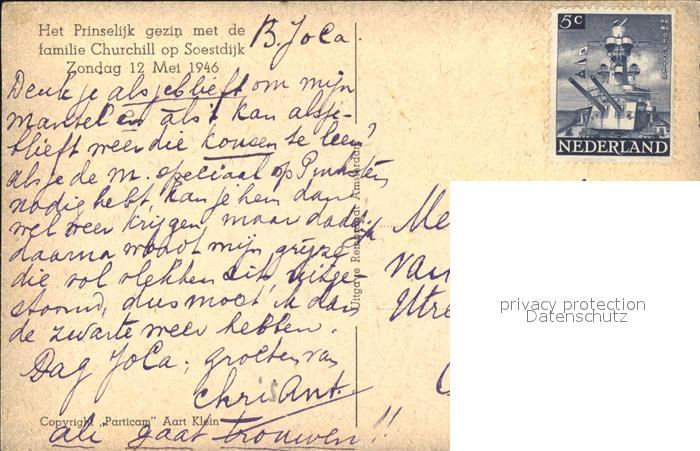 Het Prinselijk gezin met de
familie Churchill op Soestdijk
Zondag 12 Mei 1946
B. JoCa.
Denk je alsjeblieft om mijn
mantel en als 't kan alsje-
blieft weer die kousen te leen?
als je de m. speciaal op Pinksten
nodig hebt, kan je hem dan
wel weer krijgen, maar dadelijk
daarna wordt mijn grijze
die vol vlekken zit, uitge-
stoomd, dus moet ik dan
de zwarte weer hebben.
Dag JoCa, groeten van
Chri Ant.
ali gaat trouwen!!
Copyright „Particam" Aart Klein
Uitgave Rembrandt Amsterdam
5c
NEDERLAND
Me
van
Utre
privacy protection
Datenschutz